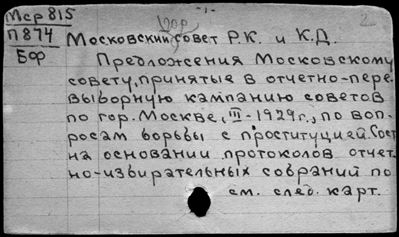 - 1 -
Мср 815
П 874
БФ
2
гор.
Московский совет Р.К. и К.Д.
Предложения Московскому
совету, принятые в отчетно-пере-
выборную кампанию советов
по гор. Москве, III-1929г., по воп-
росам борьбы с проституцией. Сост.
на основании протоколов отчет-
но-избирательных собраний по
см. след. карт.